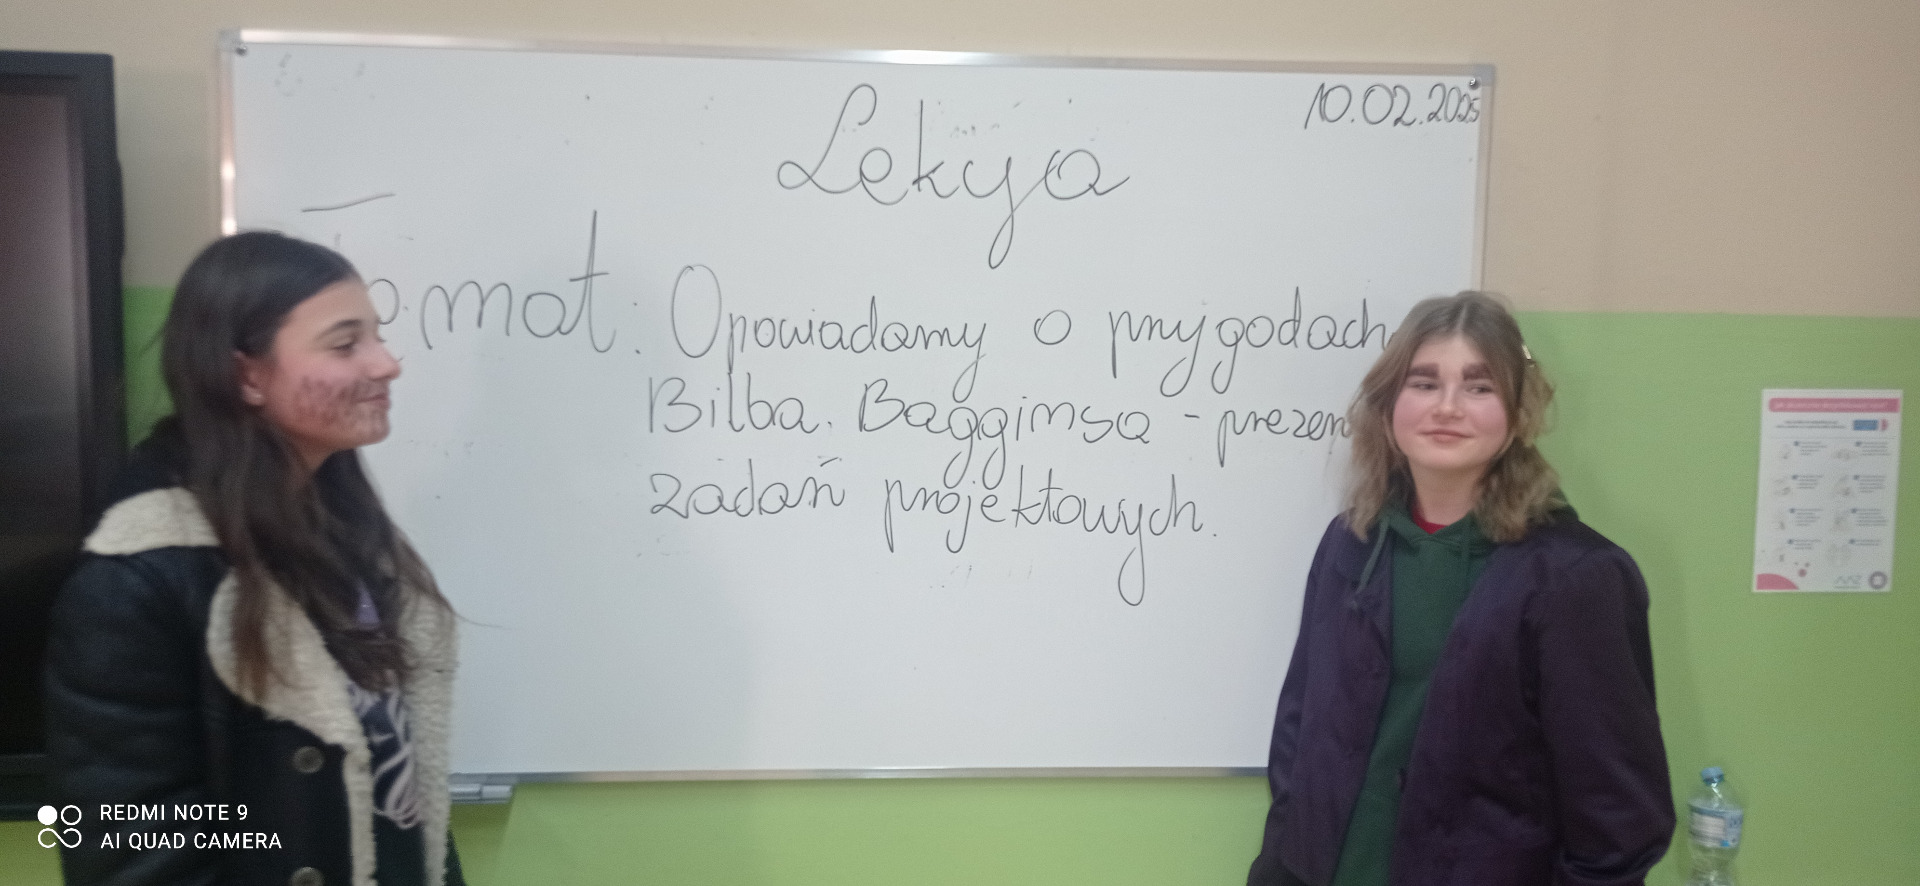 10.02.2025
Lekcja
Temat: Opowiadamy o przygodach
Bilba Bagginsa - prezen
zadań projektowych.
REDMI NOTE 9
AI QUAD CAMERA